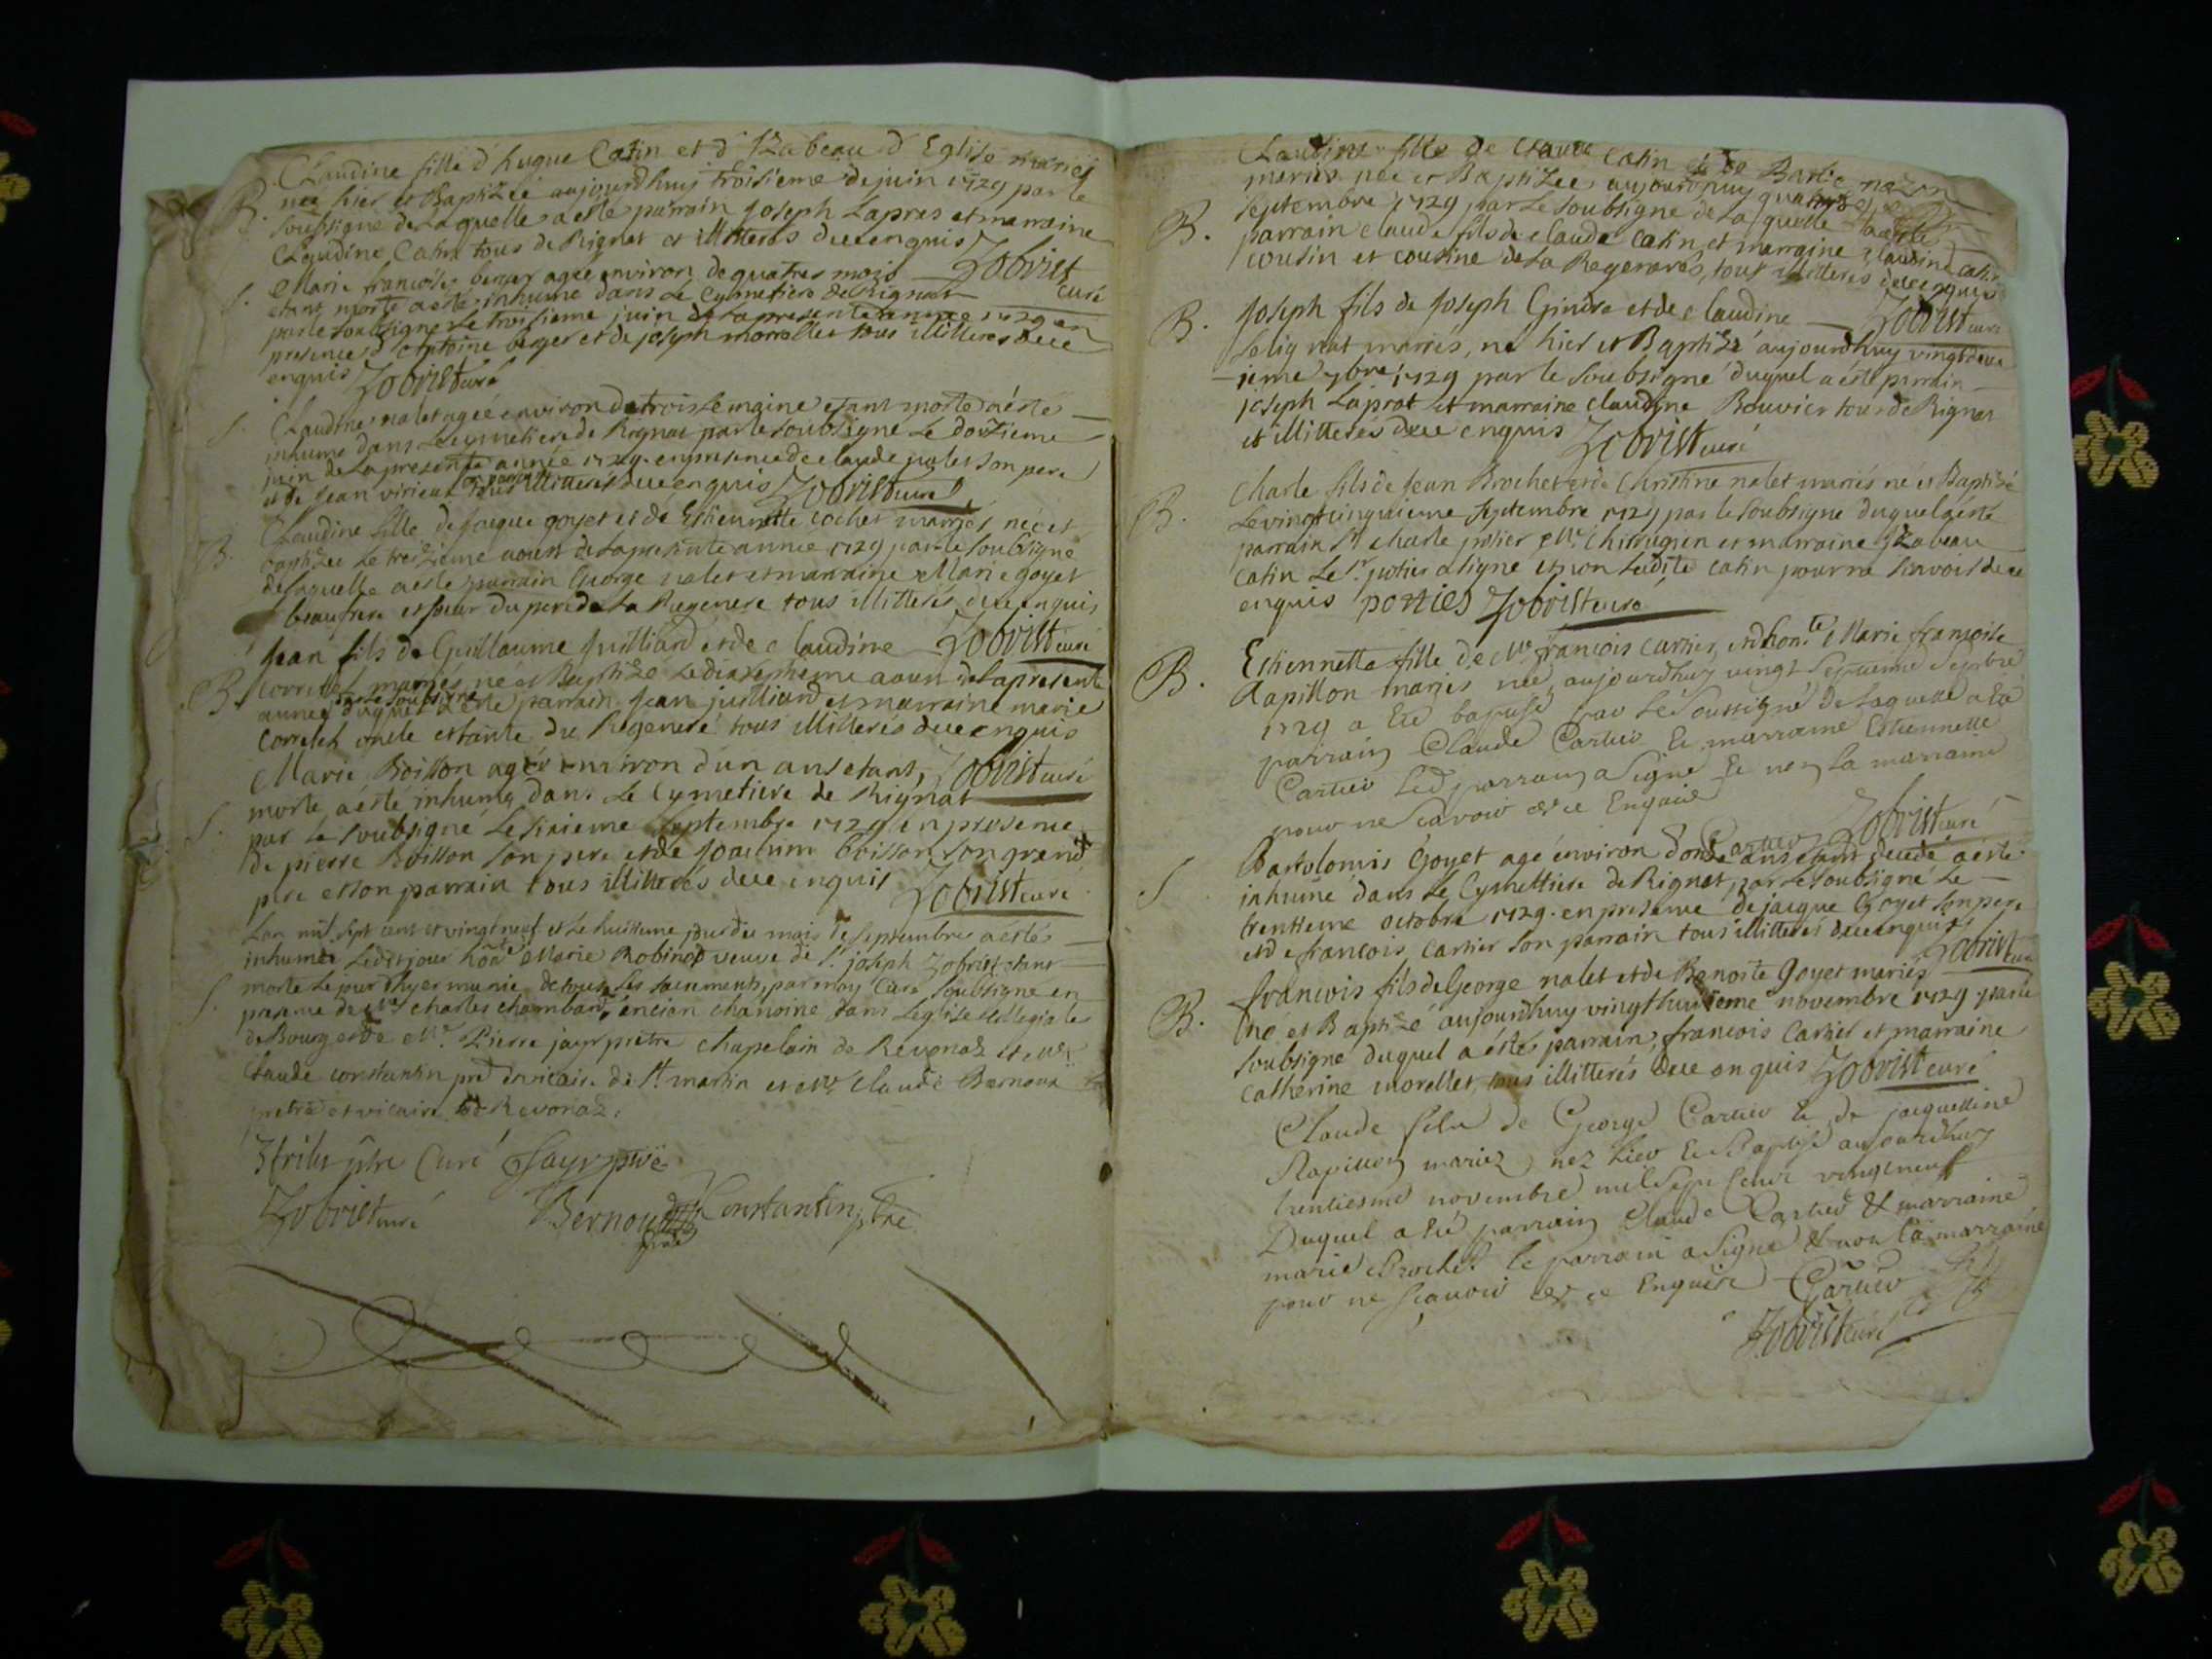 Claudine fille d'hugue Catin et d'Izabeau d'Eglise mariés
B. née hier et Baptizée aujourdhuy troisieme de juin 1729 par le
soubsigne de laquelle a esté parrain joseph Lapras et marraine
Claudine Catin tous de Rignat et illitteres de ce enquis Zobrist
curé
Marie françoise berger agée environ de quatres mois
S. etant morte a esté inhumé dans le Cymetiere de Rignat
par le soubsigne le troisieme juin de la presente année 1729 en
presence d'Antoine berger et de joseph morrallet tous illitteres de ce
enquis Zobrist curé
S. Claudine nalet agée environ de trois semaine etant morte a esté
inhumé dans le cymetiere de Rignat par le soubsigne le douzieme
juin de la presente année 1729. en presence de claude nalet son pere
et de jean virieux son parrain tous illitteres de ce enquis Zobrist curé
Claudine fille de jaque goyet et de Estiennette cochet mariés, née et
B. baptizée le treizieme aoust de la presente année 1729 par le soubsigne
de laquelle a esté parrain George nalet et marraine Marie goyet
beaufrere et soeur du pere de la Regenere tous illitterés de ce enquis
Zobrist curé
Jean fils de Guillaume juilliard et de claudine
B. correllet mariés né et Baptizé le dix septieme aoust de la presente
année par le soubsigne duquel a esté parrain jean juilliard et marraine marie
Correlet oncle et tante du Regeneré tous illitterés de ce enquis
Zobrist curé
Marie Boisson agée environ d'un ans etant
morte a ésté inhumé dans le Cymetiere de Rignat
S. par le soubsigné le sixieme septembre 1729 en presence
de pierre Boisson son pere et de joachim boisson son grand
pere et son parrain tous illitteres de ce enquis Zobrist curé
Lan mil sept cent et vingt neuf et le huitieme jour du mois de septembre a estés
inhumée ledit jour hon.de Marie Robinod veuve de Sr. joseph Zobrist etant
S. morte le jour d'hyer munie de tous les sacrements, par moy curé soubsigne en
presence de Mre Charles chambard, encien chanoine dans l'eglise collegiale
de Bourg et de Mre. Pierre jayr prêtre chapelain de Revonaz et Mre
Claude constantin pre et vicaire de St martin et Mre claude Bernoux
pretre et vicaire de Revonaz.
ptre Curé Jayr ptre
Zobrist curé Bernoux Constantin ptre
Claudine fille de claude catin et de Barbe
mariés née et Baptizée aujourdhuy
septembre 1729 par le soubsigne de laquelle a esté
B. parrain claude fils de claude catin et marraine claudine catin
cousin et cousine de la Regenerés, tous illitteres de ce enquis
Zobrist curé
B. Joseph fils de joseph Gindre et de claudine
Solignat mariés, né hier et Baptizé aujourdhuy vingt deux
ieme 7bre 1729 par le soubsigné duquel a ésté parrain
joseph Laprat et marraine claudine Bouvier tous de Rignat
et illitteres de ce enquis Zobrist curé
Charle fils de jean Brochet et de Christine nalet mariés né et Baptizé
B. le vingt cinquieme septembre 1729 par le soubsigne duquel a esté
parrain Sr charle potier Me. Chirrugien et marraine Izabeau
Catin le Sr. potier a signé et non ladite catin pour ne scavoir de ce
enquis pottier Zobrist curé
Estiennette fille de Me françois cartier et d'hon.te Marie françoise
B. Rapillon mariés née aujourdhuy vingt septieme septbre
1729 a été baptisé par le soussigné de laquelle a été
parrain Claude Cartier & marraine Estiennette
Cartier led parrain a signé & non la marraine
pour ne scavoir de ce Enquise
Cartier Zobrist curé
Bartolomis Goyet agé environ d'onze ans etant decedé a ésté
S inhumé dans le Cymettiere de Rignat, par le soubsigné le
trentieme octobre 1729. en presence de jacque Goyet son pere
et de francois cartier son parrain tous illitterés de ce enquis
Zobrist curé
francois fils de George nalet et de Benoite Goyet mariés
B. né et Baptizé aujourdhuy vingt huitieme novembre 1729 par le
soubsigne duquel a éstés parrain, francois Cartier et marraine
Catherine morellet, tous illitterés de ce enquis Zobrist curé
Claude fils de George Cartier & de jacqueline
Rapillon mariez nez hier & Baptisé aujourdhuy
trentiesme novembre mil Sept Cent vingt neuf
Duquel a été parrain Claude Cartier & marraine
marie Brochet le parrain a signé & non la marraine
pour ne scavoir de ce Enquise Cartier
Zobrist curé